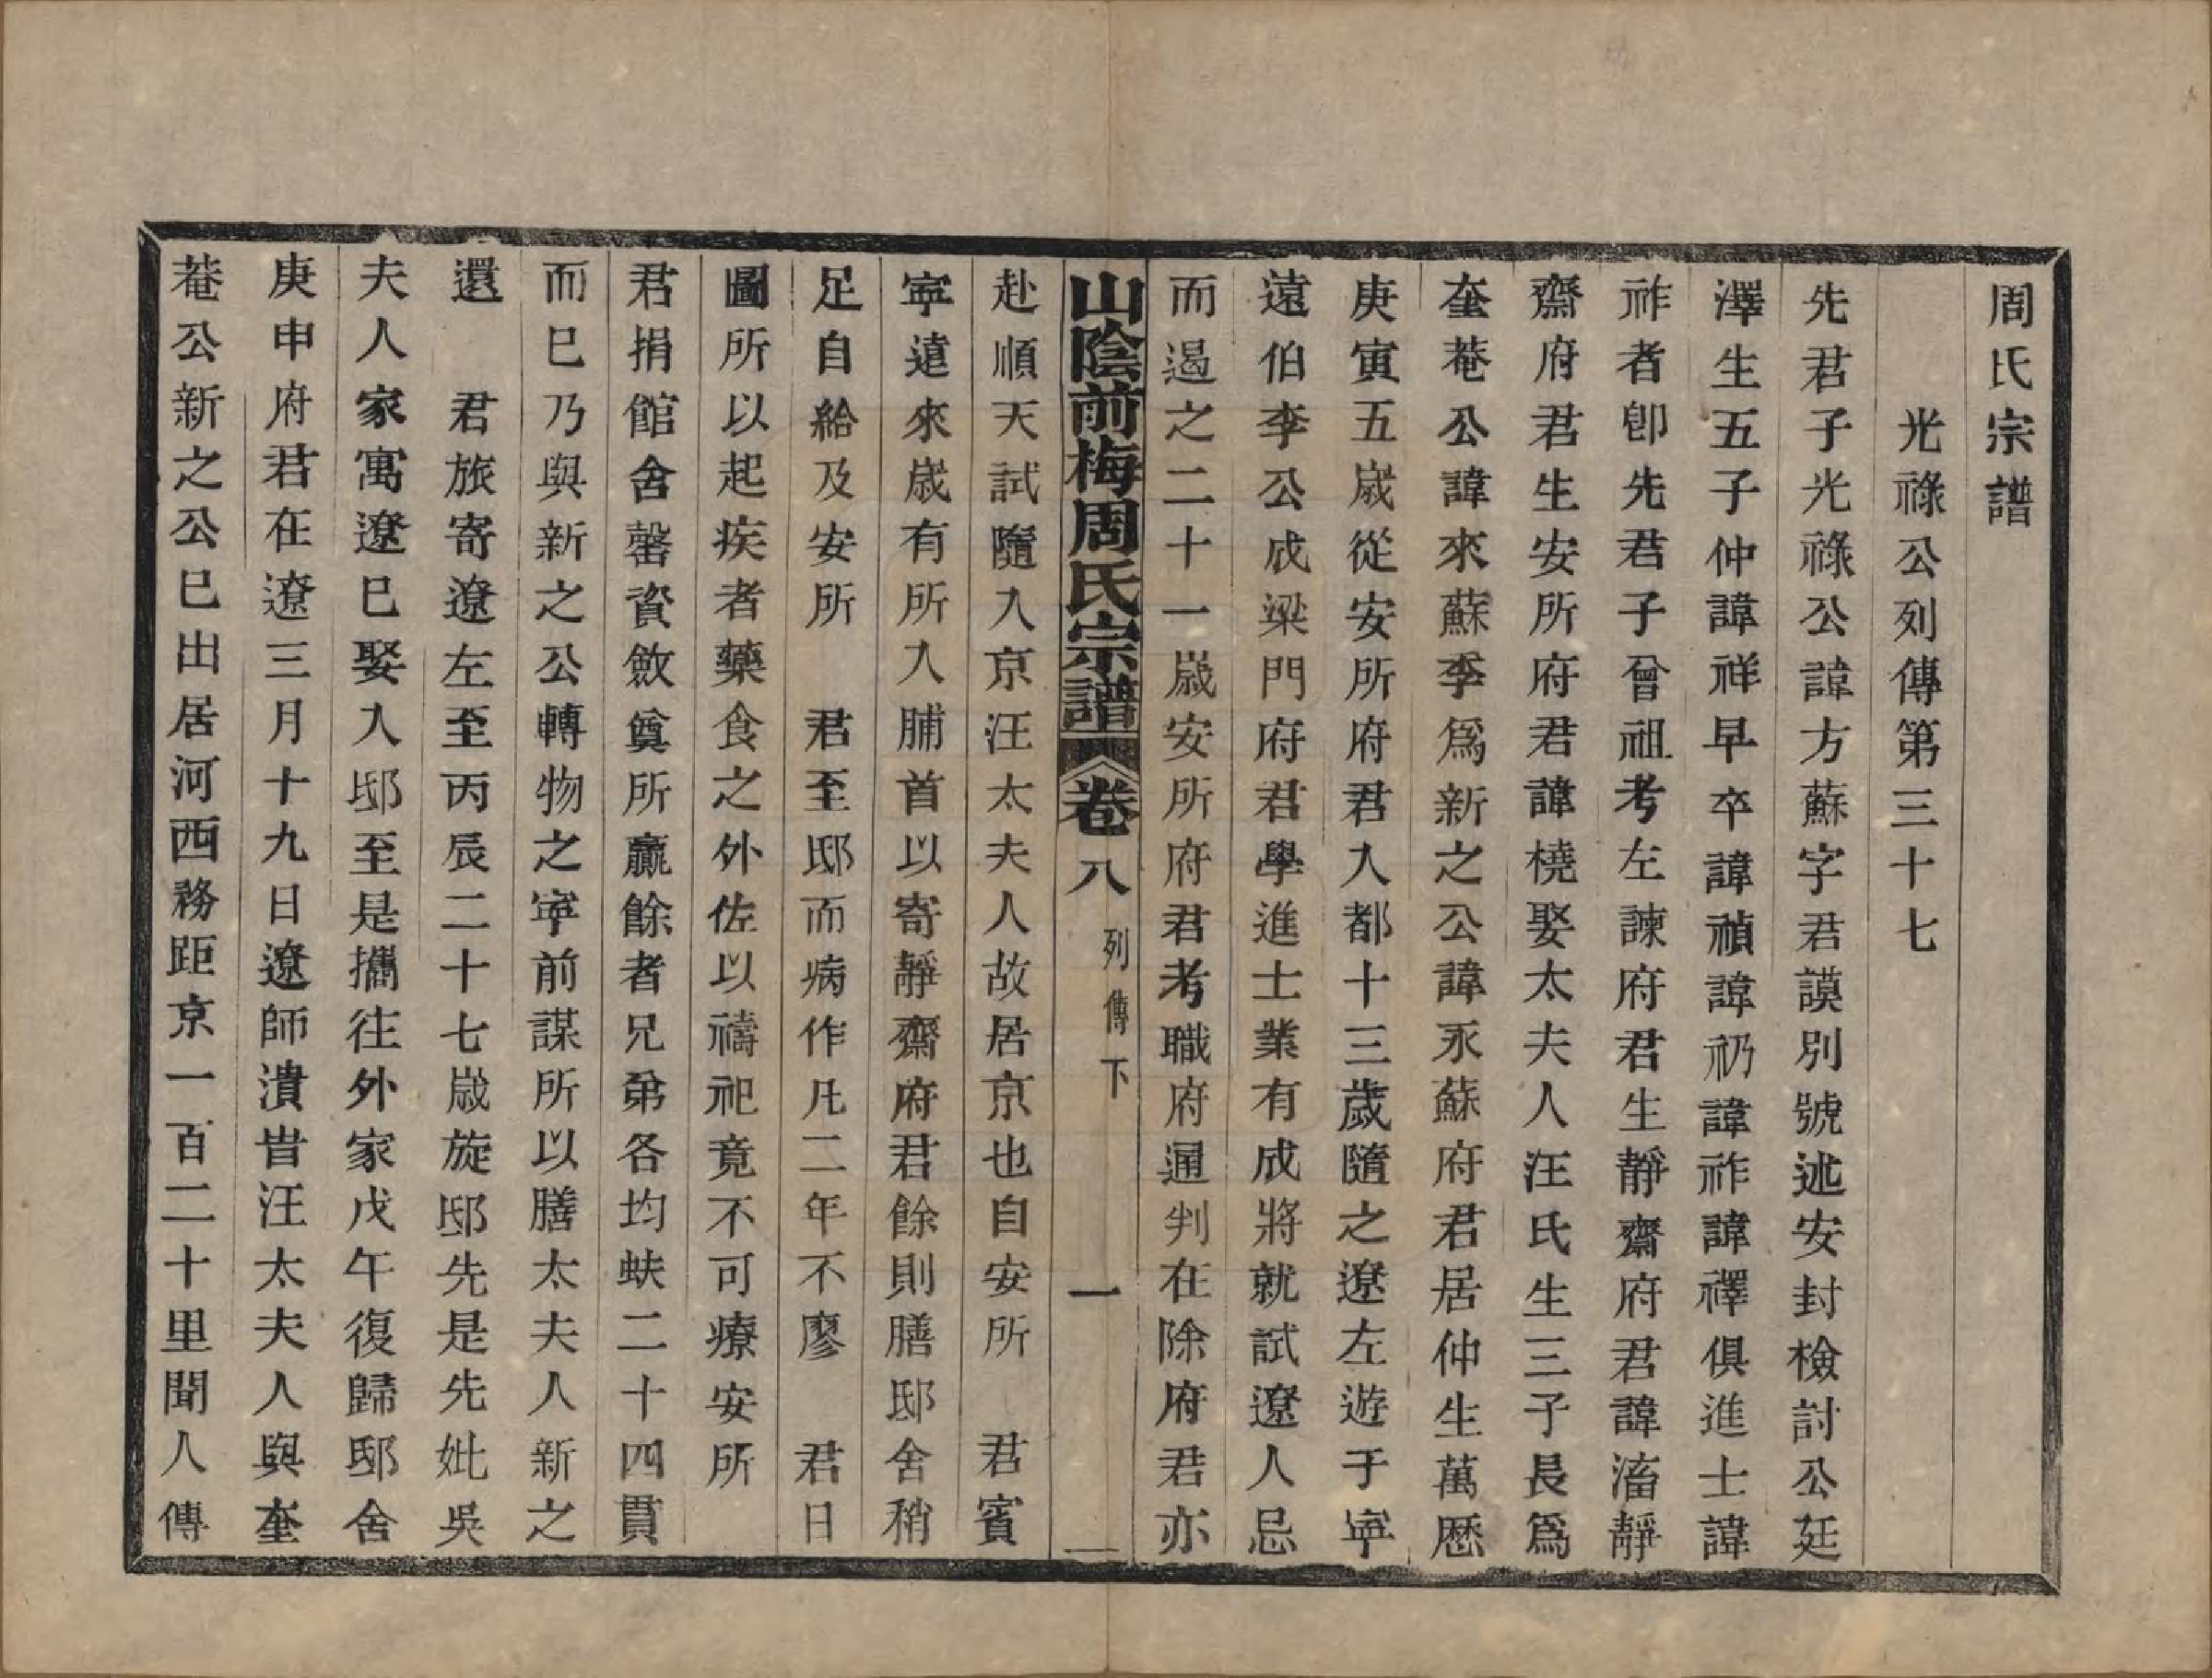 周氏宗譜
光祿公列傳第三十七
先君子光祿公諱方蘇字君謨別號述安封檢討公廷
澤生五子仲諱祥早卒諱禎諱礽諱祚諱禪俱進士諱
祚者卽先君子曾祖考左諫府君生靜齋府君諱滀靜
齋府君生安所府君諱橈娶太夫人汪氏生三子長爲
奎菴公諱來蘇季爲新之公諱永蘇府君居仲生萬歷
庚寅五歲從安所府君入都十三歲隨之遼左遊于寧
遠伯李公成梁門府君學進士業有成將就試遼人忌
而遏之二十一歲安所府君考職府通判在除府君亦
山陰前梅周氏宗譜 卷八 列傳下 一
赴順天試隨入京汪太夫人故居京也自安所 君賓
寧遠來歲有所入脯首以寄靜齋府君餘則膳邸舍稍
足自給及安所 君至邸而病作凡二年不廖 君日
圖所以起疾者藥食之外佐以禱祀竟不可療安所
君捐館舍罄資斂奠所贏餘者兄弟各均蚨二十四貫
而巳乃與新之公轉物之寧前謀所以膳太夫人新之
還 君旅寄遼左至丙辰二十七歲旋邸先是先妣吳
夫人家寓遼巳娶入邸至是攜往外家戊午復歸邸舍
庚申府君在遼三月十九日遼師潰昔汪太夫人與奎
菴公新之公巳出居河西務距京一百二十里聞人傳